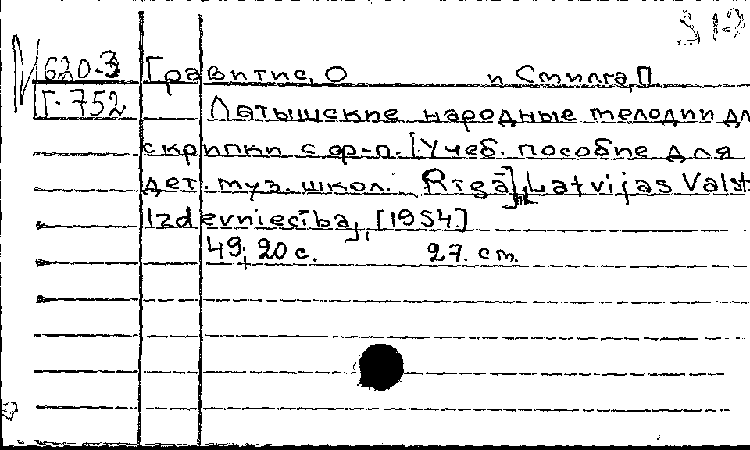 620-3 Гравитис, О и Стилга, П.
Г. 752 Латышские народные мелодии дл
скрипки с ф-п. [Учеб. пособие для
дет. муз. школ. Rīgā], Latvijas Valst.
Izdevniecība, [1954.]
49; 20 с. 27. см.